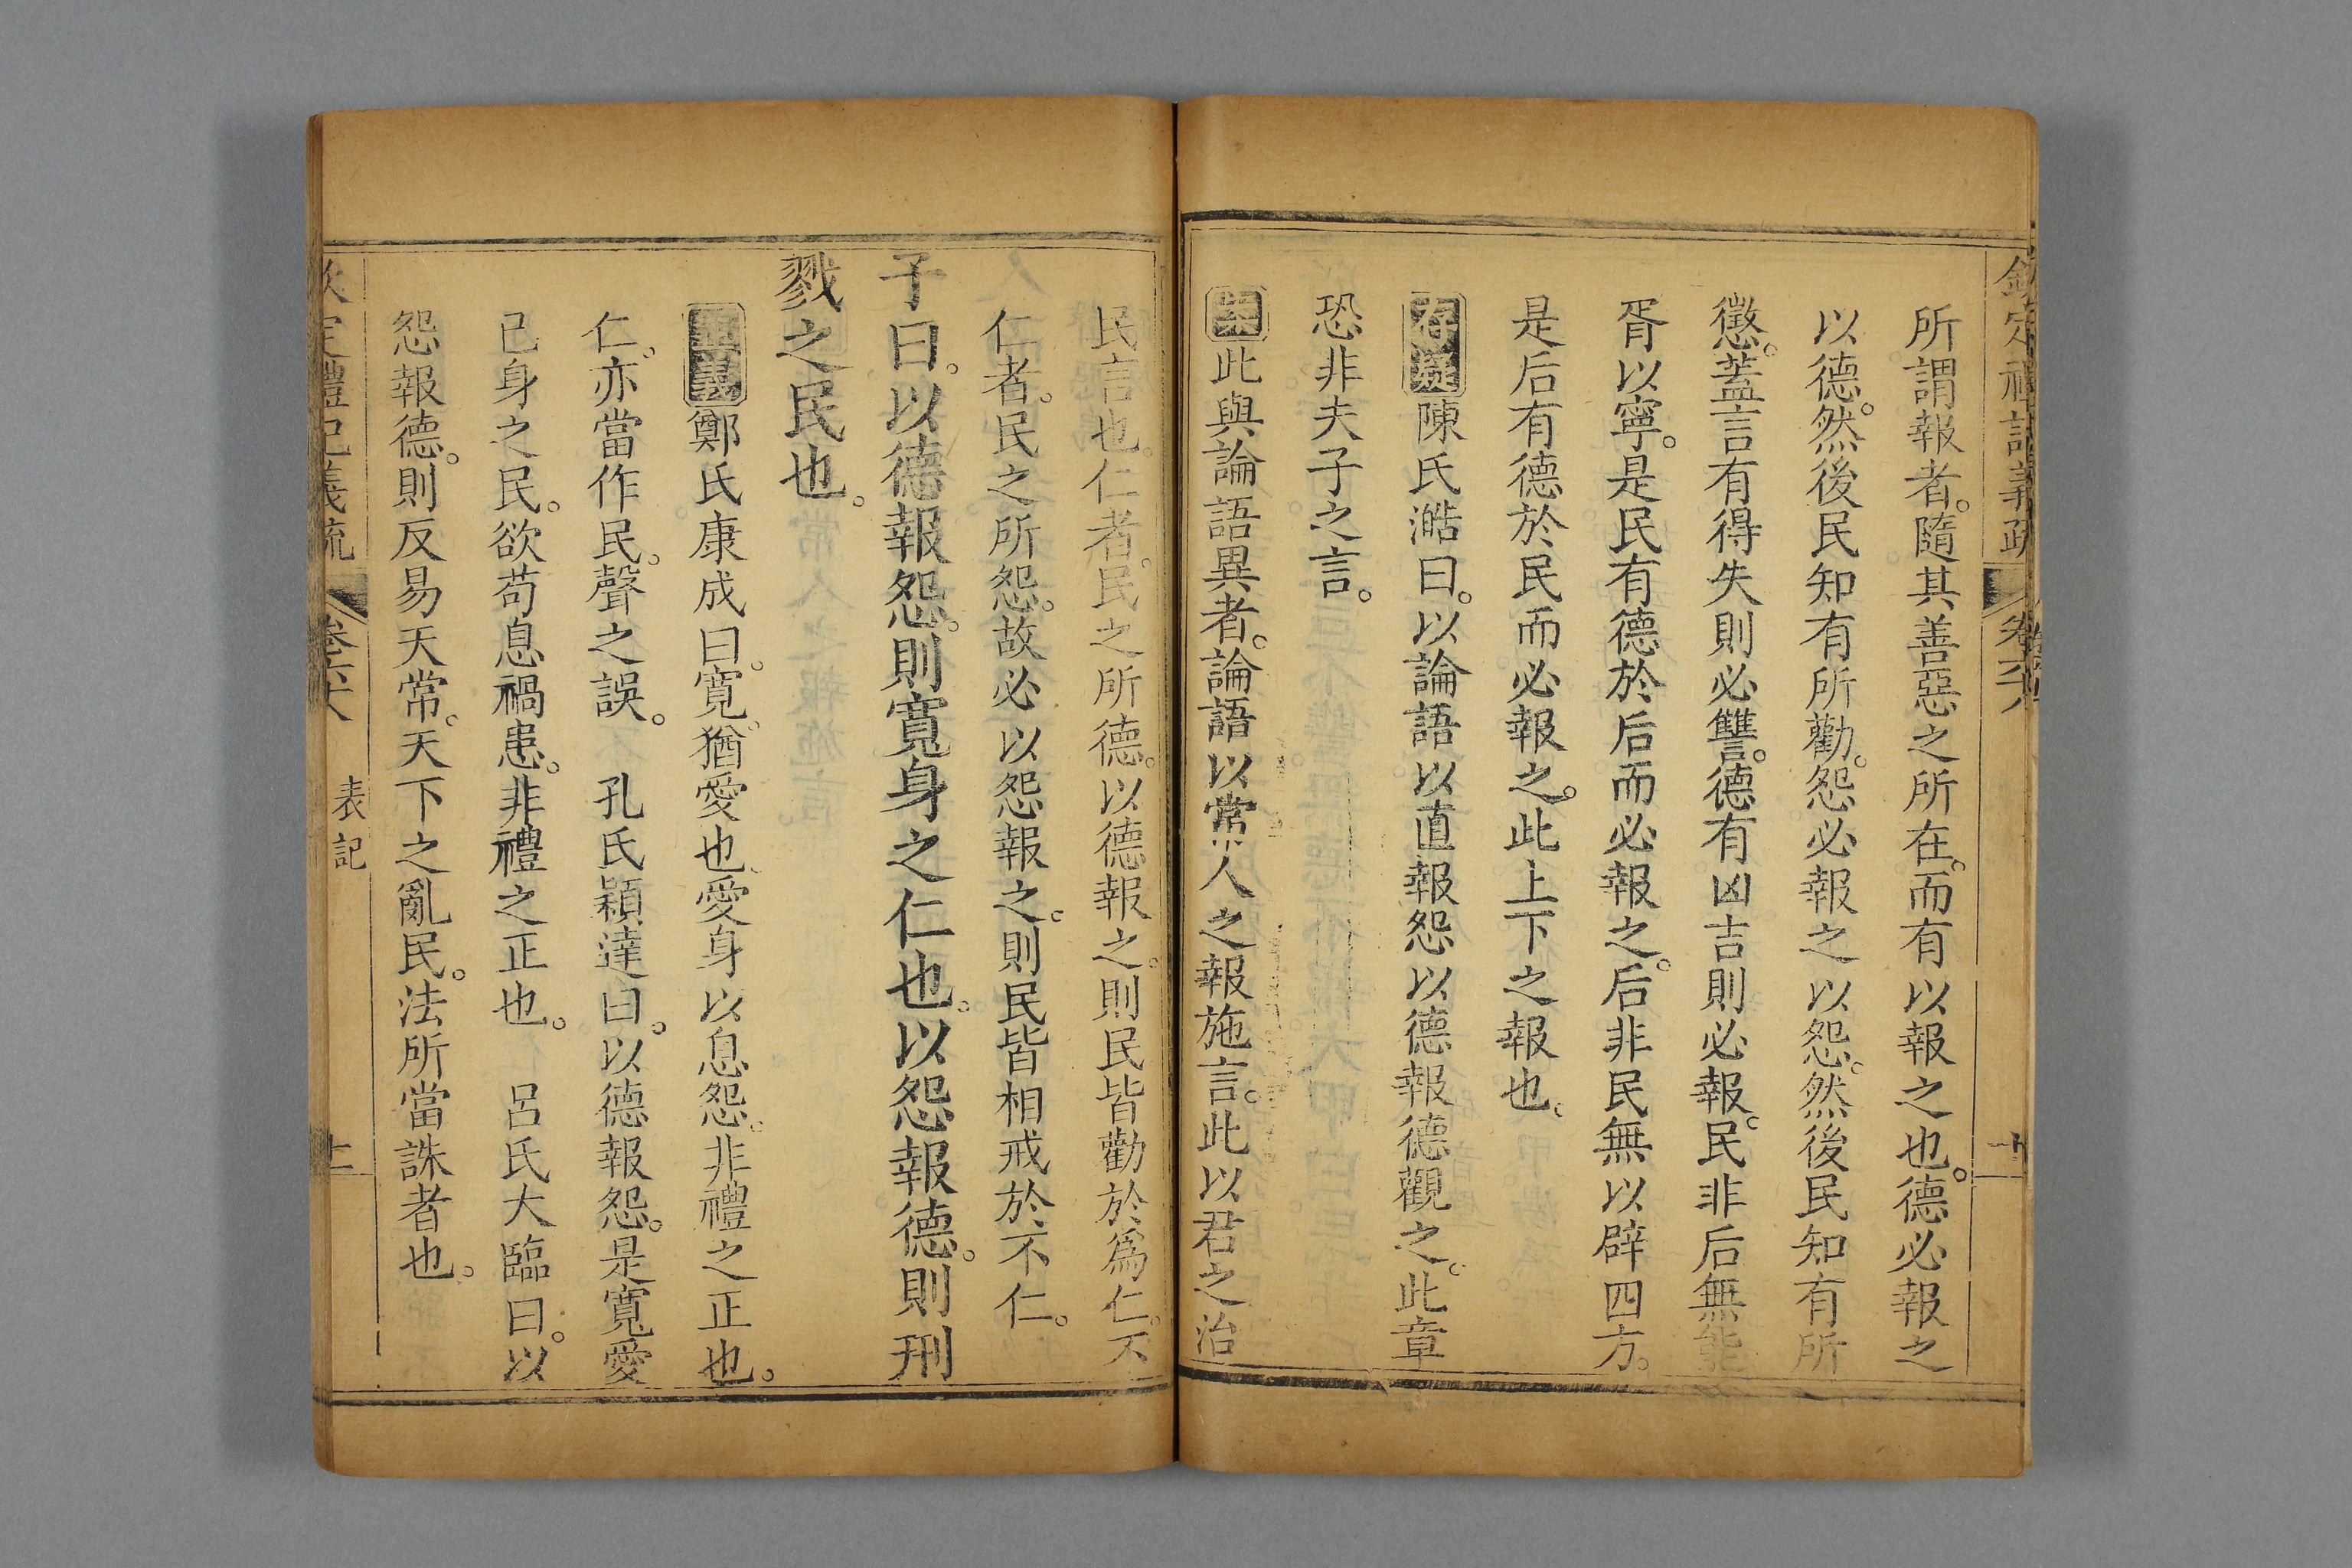 欽定禮記義疏 卷六十八
所謂報者。隨其善惡之所在。而有以報之也。德必報之
以德。然後民知有所勸。怨必報之以怨。然後民知有所
懲。蓋言有得失則必讐。德有凶吉則必報。民非后無能
胥以寧。是民有德於后而必報之。后非民無以辟四方。
是后有德於民而必報之。此上下之報也。
存疑陳氏澔曰。以論語以直報怨以德報德觀之。此章
恐非夫子之言。
案此與論語異者。論語以常人之報施言。此以君之治
民言也。仁者。民之所德。以德報之。則民皆勸於爲仁。不
仁者。民之所怨。故必以怨報之。則民皆相戒於不仁。
子曰。以德報怨。則寬身之仁也。以怨報德。則刑
戮之民也。
正義鄭氏康成曰。寬。猶愛也。愛身以息怨。非禮之正也。
仁。亦當作民。聲之誤。 孔氏穎達曰。以德報怨。是寬愛
己身之民。欲苟息禍患。非禮之正也。 呂氏大臨曰。以
怨報德。則反易天常。天下之亂民。法所當誅者也。
欽定禮記義疏 卷六十八 表記